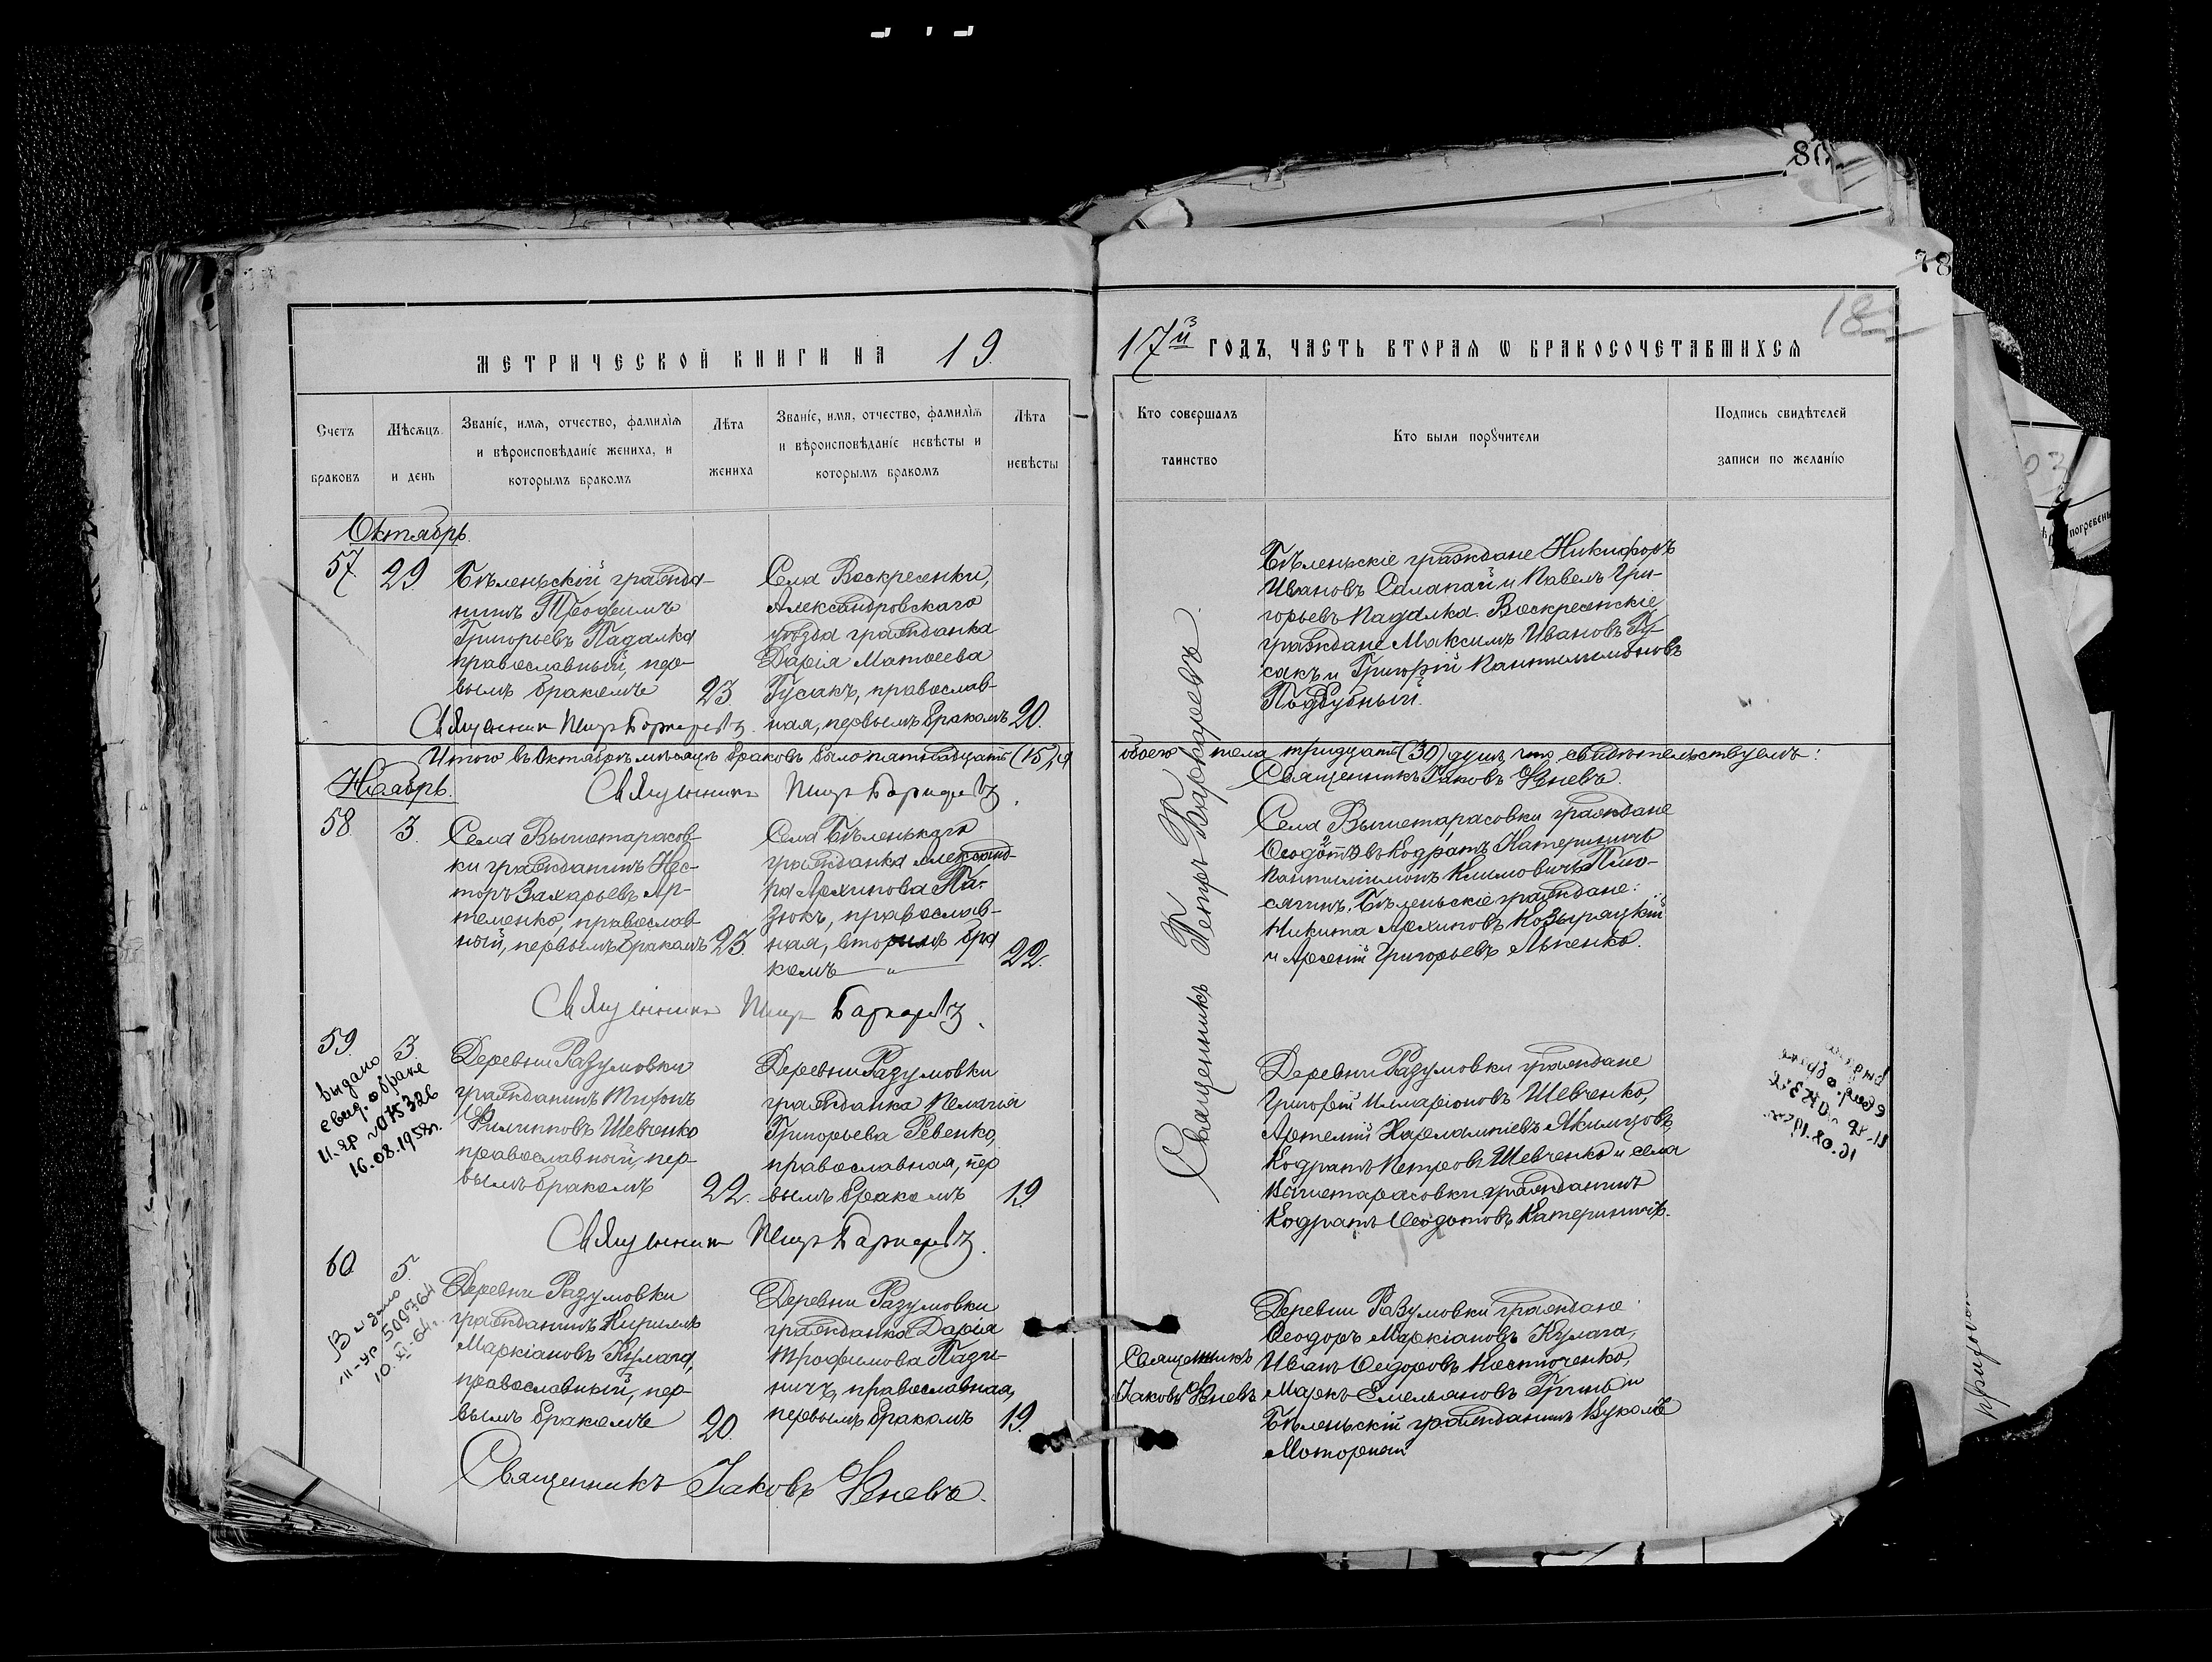 80
78
182
МЕТРИЧЕСКОЙ КНИГИ НА 19
17й ГОДЪ, ЧАСТЬ ВТОРАЯ Ѡ БРАКОСОЧЕТАВШИХСЯ
Счетъ браковъ
Мѣсяцъ и день
Званіе, имя, отчество, фамилія
и вѣроисповѣданіе жениха, и
которымъ бракомъ
Лѣта жениха
Званіе, имя, отчество, фамилія
и вѣроисповѣданіе невѣсты и
которымъ бракомъ
Лѣта невѣсты
Кто совершалъ таинство
Кто были поручители
Подпись свидѣтелей
записи по желанію
Октябрь.
57
29
Бѣленьскій гражда-
нинъ Трофимъ
Григорьевъ Падалка
православный, пер-
вымъ бракомъ
23
Села Воскресенки,
Александровскаго
уѣзда гражданка
Дарія Матѳеева
Гусакъ, православ-
ная, первымъ бракомъ
20.
Бѣленьскіе граждане Никифоръ
Ивановъ Салапай и Павелъ Гри-
горьевъ Падалка. Воскресенскіе
граждане Максимъ Ивановъ Гу-
сакъ и Григорій Пантилимоновъ
Поддубный.
Священникъ Петръ Баркаревъ
Итого въ Октябрѣ мѣсяцѣ браковъ было пятнадцать (15), а
обоего пола тридцать (30) душъ, что свидѣтельствуемъ:
Священникъ Петръ Баркаревъ
Священникъ Іаковъ Ѳеневъ.
Ноябрь.
58
3.
Села Вышетарасов-
ки гражданинъ Нес-
торъ Захарьевъ Ар-
теменко, православ-
ный, первымъ бракомъ
25.
Села Бѣленькаго
гражданка Александ-
ра Архипова Па-
зюкъ, православ-
ная, вторымъ бра
комъ
22.
Села Вышетарасовки граждане
Ѳеодотовъ Кодратъ Катериничъ
Пантилимонъ Климовичъ
Бѣленьскіе граждане:
Никита Архиповъ Козыряцкій
и Арсеній Григорьевъ
Священникъ Петръ Баркаревъ
59.
3.
выдано
свид. о браке
II-яр №075326
16.08.1958г.
Деревни Разумовки
гражданинъ Тифонъ
Филипповъ Шевченко
православный, пер-
вымъ бракомъ
22.
Деревни Разумовки
гражданка Пелагія
Григорьева Ревенко,
православная, пер
вымъ бракомъ
19.
Деревни Разумовки граждане
Григорій Илларіоновъ Шевченко,
Артемій Харлампіевъ Якимцовъ,
Кодратъ Петровъ Шевченко и села
Вышетарасовки гражданинъ
Кодратъ Ѳеодотовъ Катериничъ.
Священникъ Петръ Баркаревъ
60
5.
Выдано
III-УР 509764
10.XI-64г.
Деревни Разумовки
гражданинъ Кириллъ
Маркіановъ Кулага,
православный, пер-
вымъ бракомъ
20.
Деревни Разумовки
гражданка Дарія
Трофимова Пази-
ничъ, православная,
первымъ бракомъ
19.
Священникъ
Іаковъ Ѳеневъ
Деревни Разумовки граждане
Ѳеодоръ Маркіановъ Кулага,
Иванъ Ѳедоровъ Костюченко,
Маркъ Емельяновъ Гринь и
Бѣленьскій гражданинъ Вуколъ
Моторный
Священникъ Іаковъ Ѳеневъ.
Священникъ Петръ Баркаревъ.
погребены